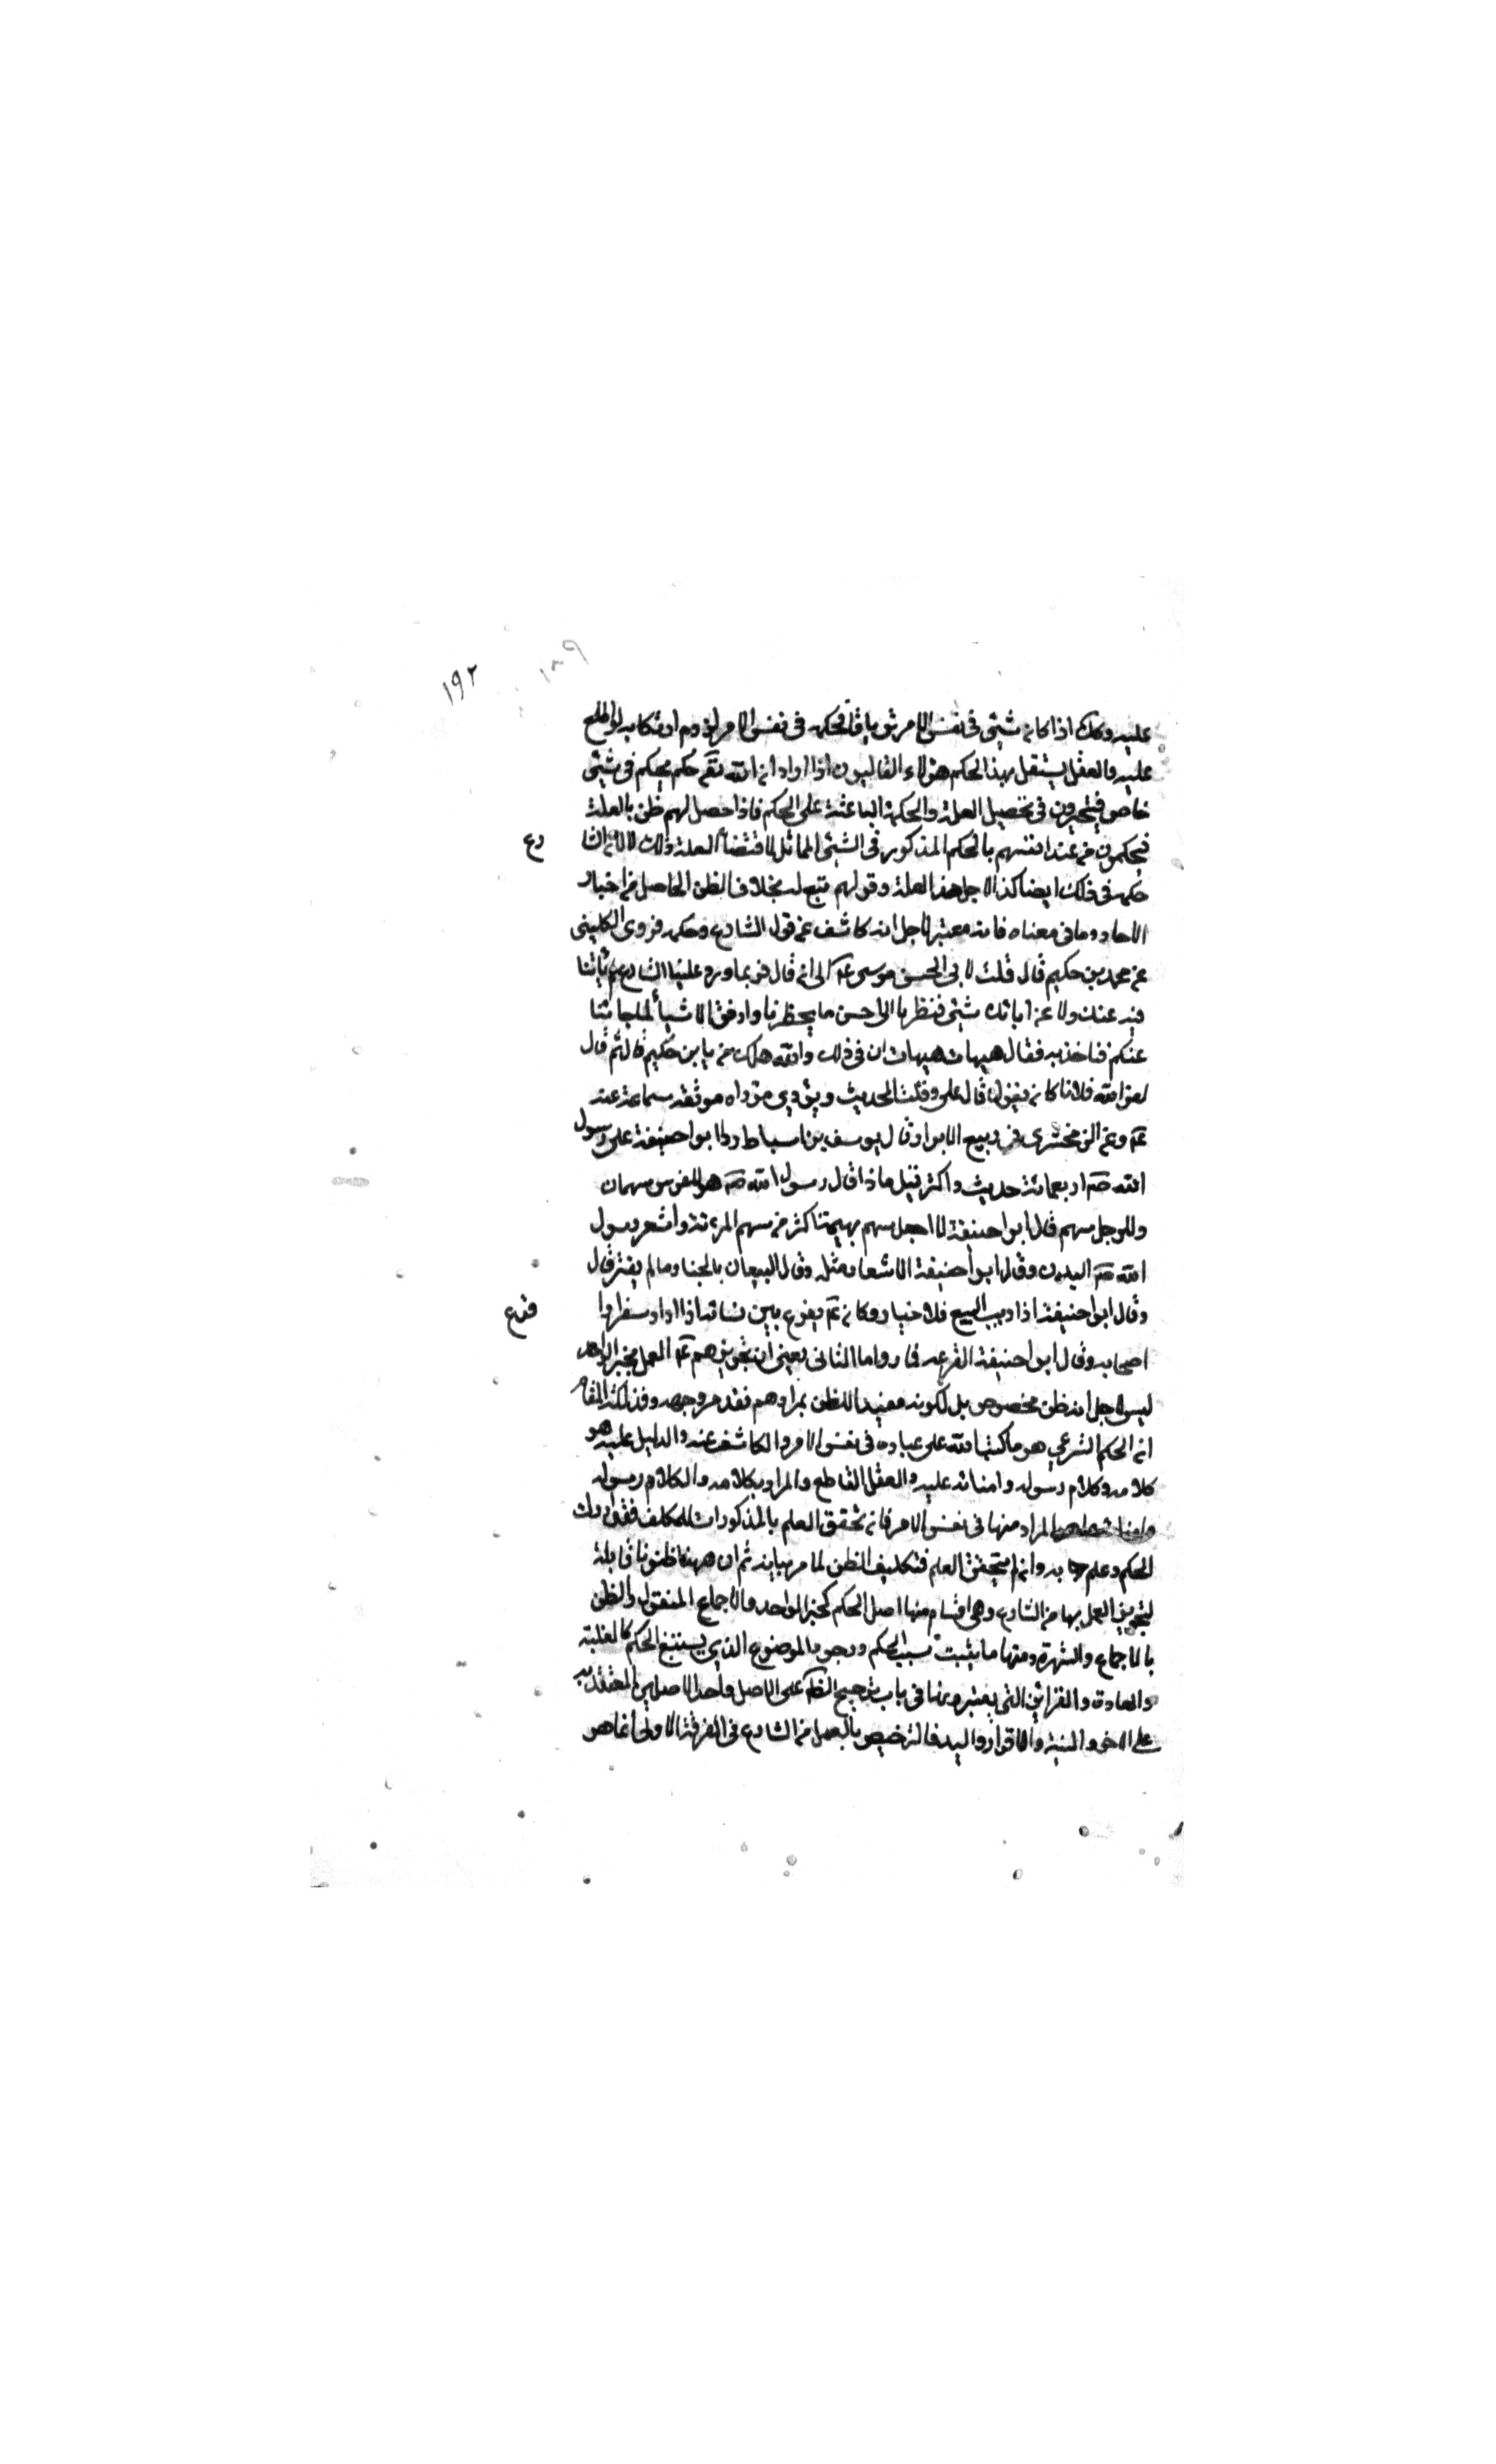 ١٩٢
١٣٩
عليه وكذلك اذا كان شيئ في نفس الامر ترياقا فحكمه في نفس الامر لزوم ارتكابه لو اطلع
عليه والعقل يستقل بهذا الحكم هؤلاء القاليون اذا اراد ان الله تعم حكم بحكم في شيئ
خاص فيتحرون في تحصيل العلة والحكمة الباعثة على الحكم فاذا حصل لهم ظن بالعلة
فيحكمون من عند انفسهم بالحكم المذكور في الشيئ المماثل لاقتضأ العلة ذلك لا لان الشا
رع
حكمه في ذلك ايضا كذا لاجل هذا العلة وقولهم متبع له بخلاف الظن الحاصل من اخبار
الاحاد وما في معناه فانه معتبر لاجل انه كاشف عن قول الشارع وحكمه فروى الكليني
عن محمد بن حكيم قال قلت لابي الحسن موسى عم الى ان قال فربما ورد علينا الشيئ لم يأتنا
فيه عنك ولا عن ابائك شيئ فنظرنا الى احسن ما يحظرنا واوفق الاشيأ لما جائنا
عنكم فناخذ به فقال هيهات هيهات ان في ذلك والله هلك من يا بن حكيم قال ثم قال
لعن الله فلانا كان يقول قال علي وقلت الحديث ويؤدي مؤداه موثقه سماعة عنه
عم وعن الزمخشري في ربيع الابرار قال يوسف بن اسباط رد ابو احنيفة على رسول
الله صم اربعمائة حديث واكثر قيل ماذا قال رسول الله صم للفرس سهمان
وللرجل سهم قال ابو احنيفة لا اجعل سهم بهيمة اكثر من سهم المؤمن واشعر رسول
الله صم البدن وقال ابو احنيفة الاشعار مثله وقال البيعان بالخيار مالم يفترقا
وقال ابو احنيفة اذا وجب البيع فلا خيار وكان عم يقرع بين نسائه اذا اراد سفرا وا
قرع
اصحابه وقال ابو احنيفة القرعه قمار واما الثاني يعني ان تجويزهم عم العمل بخبر الواحد
ليس لاجل انه ظن مخصوص بل لكونه مفيدا للظن بمرادهم فقد مر وجهه وفذلكة المقام
ان الحكم الشرعي هو ما كتب الله على عباده في نفس الامر والكاشف عنه والدليل عليه هو
كلامه وكلام رسوله وامنائه عليه والعقل القاطع والمراد بكلامه والكلام رسوله
وامنائه المراد منها في نفس الامر فان تحقق العلم بالمذكورات للمكلف فقد ادرك
الحكم وعلم به وان لم يتحقق العلم فتكليفه الظن لما مر بيانه ثم ان ههنا ظنونا قابلة
لتجويز العمل بها من الشارع وهي اقسام منها اصل الحكم كخبر الواحد والاجماع المنقول والظن
بالاجماع والشهرة ومنها ما يثبت سبب الحكم ووجود الموضوع الذي يستتبع الحكم كالغلبة
والعادة والقرائن التي يعتبرونها في باب ترجيح الظاهر على الاصل واحد الاصلين المعتضد به
على الاخر والبينة والاقرار واليد فالترخيص بالعمل من الشارع في الفرقة الاولى انما هو